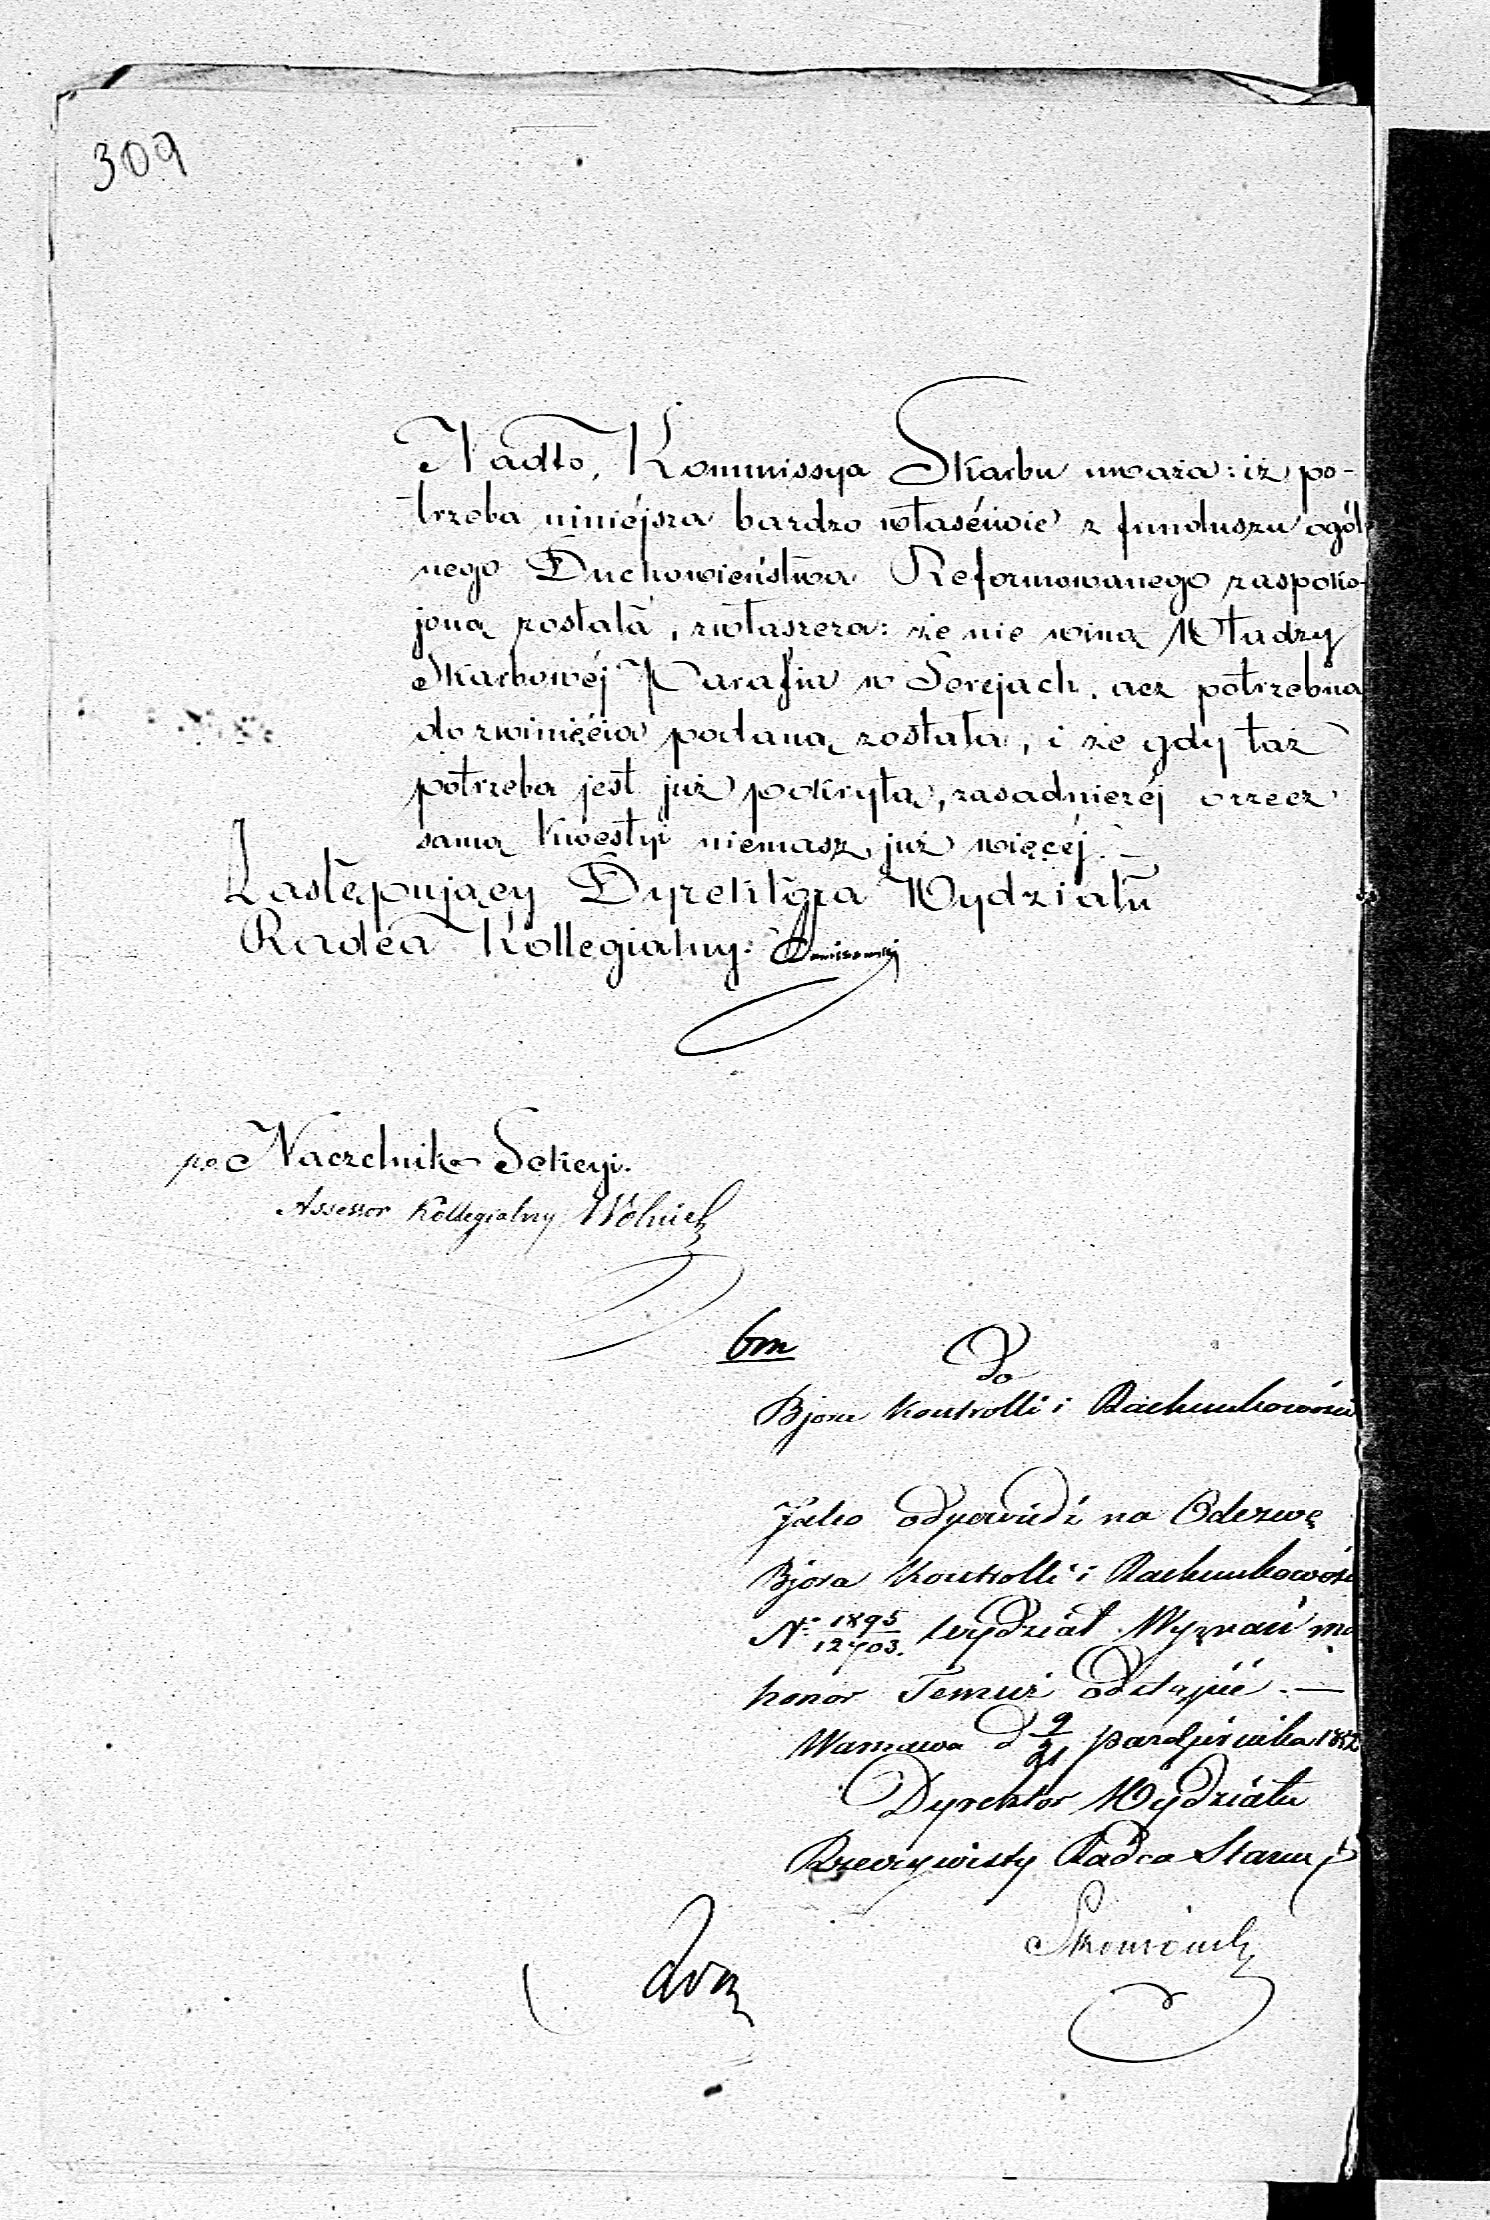 309
Nadto, Kommissya Skarbu uważa: iż po-
trzeba niniéjsza bardzo właściwie z funduszu ogól
nego Duchowieństwa Reformowanego zaspoko-
joną została, zwłaszcza: że nie winą Władzy
Skarbowéj Parafia w Serejach, acz potrzebna
do zwinięcia podaną została, i że gdy taż
potrzeba jest już pokrytą, zasadniczéj orzecz
samą kwestyi niemasz już więcéj. —
Zastępujący Dyrektora Wydziału
Radca Kollegialny:
p.o. Naczelnik Sekcyi.
Assessor Kollegialny Wolnicki
Do
Bjora Kontrolli i Rachunkowości
Jako odpowiedź na Odezwę
Bjora Kontrolli i Rachunkowości
N: 1895/12703. Wydział Wyznań ma
honor Temuż odstąpić. —
Warszawa d 9/21 Października 1852
Dyrektor Wydziału
Rzeczywisty Radca Stanu